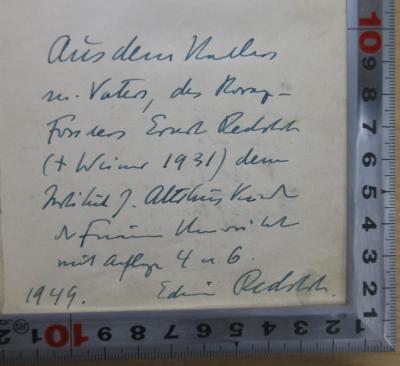 Aus dem Nachlass
m. Vaters, des Korv.-
Forstters Ernst Redslob
(+ Weimar 1931) dem
Institut f. Altertumskunde
d. Freien Universität
mit Auflage 4 u 6.
1949. Edwin Redslob.
1 2 3 4 5 6 7 8 9 10
1 2 3 4 5 6 7 8 9 10